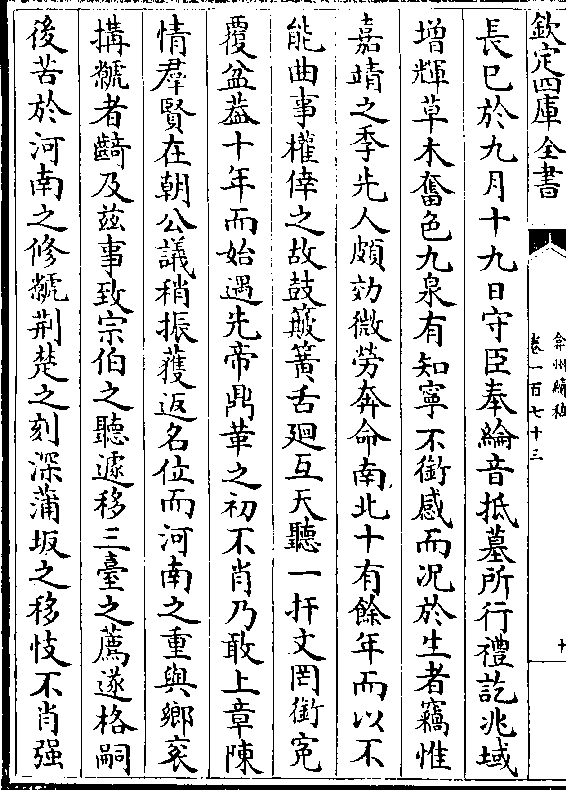 欽定四庫全書
弇州續稿
卷一百七十三
十
長已於九月十九日守臣奉綸音抵墓所行禮訖兆域
增輝草木奮色九泉有知寧不銜感而况於生者竊惟
嘉靖之季先人頗効微勞奔命南北十有餘年而以不
能曲事權倖之故鼓簸簧舌廻互天聽一扞文罔銜寃
覆盆葢十年而始遇先帝鼎革之初不肖乃敢上章陳
情羣賢在朝公議稍振獲返名位而河南之重與鄉衮
搆虩者齮及兹事致宗伯之聽遽移三臺之薦遂格嗣
後苦於河南之修虩荆楚之刻深蒲坂之移忮不肖强